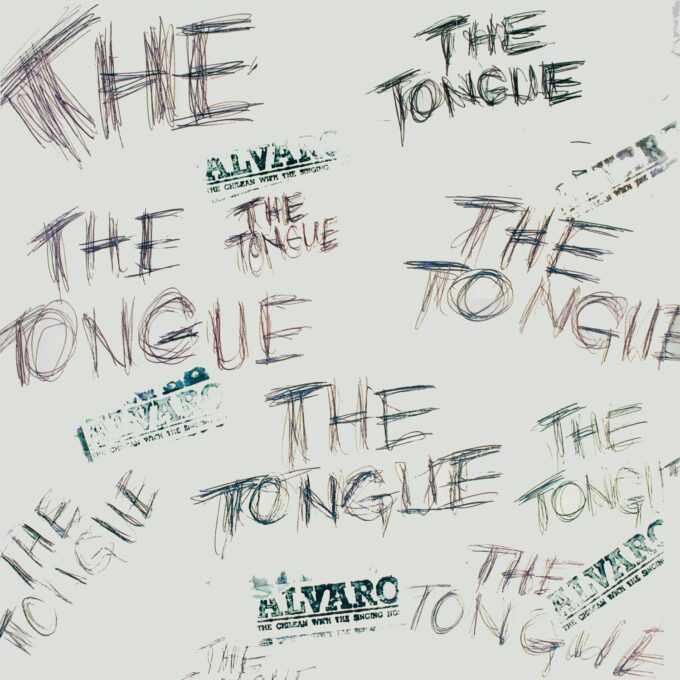 THE
THE
TONGUE
ALVARO
THE CHILEAN WITH THE SINGING
THE
TONGUE
THE
TONGUE
THE
TONGUE
ALVARO
THE CHILEAN WITH THE SINGING NO
THE
TONGUE
THE
TONGU
THE
TONGUE
THE
TONGUE
ALVARO
THE CHILEAN WITH THE SINGING
ALVARO
THE CHILEAN WITH THE SINGING NO
THE